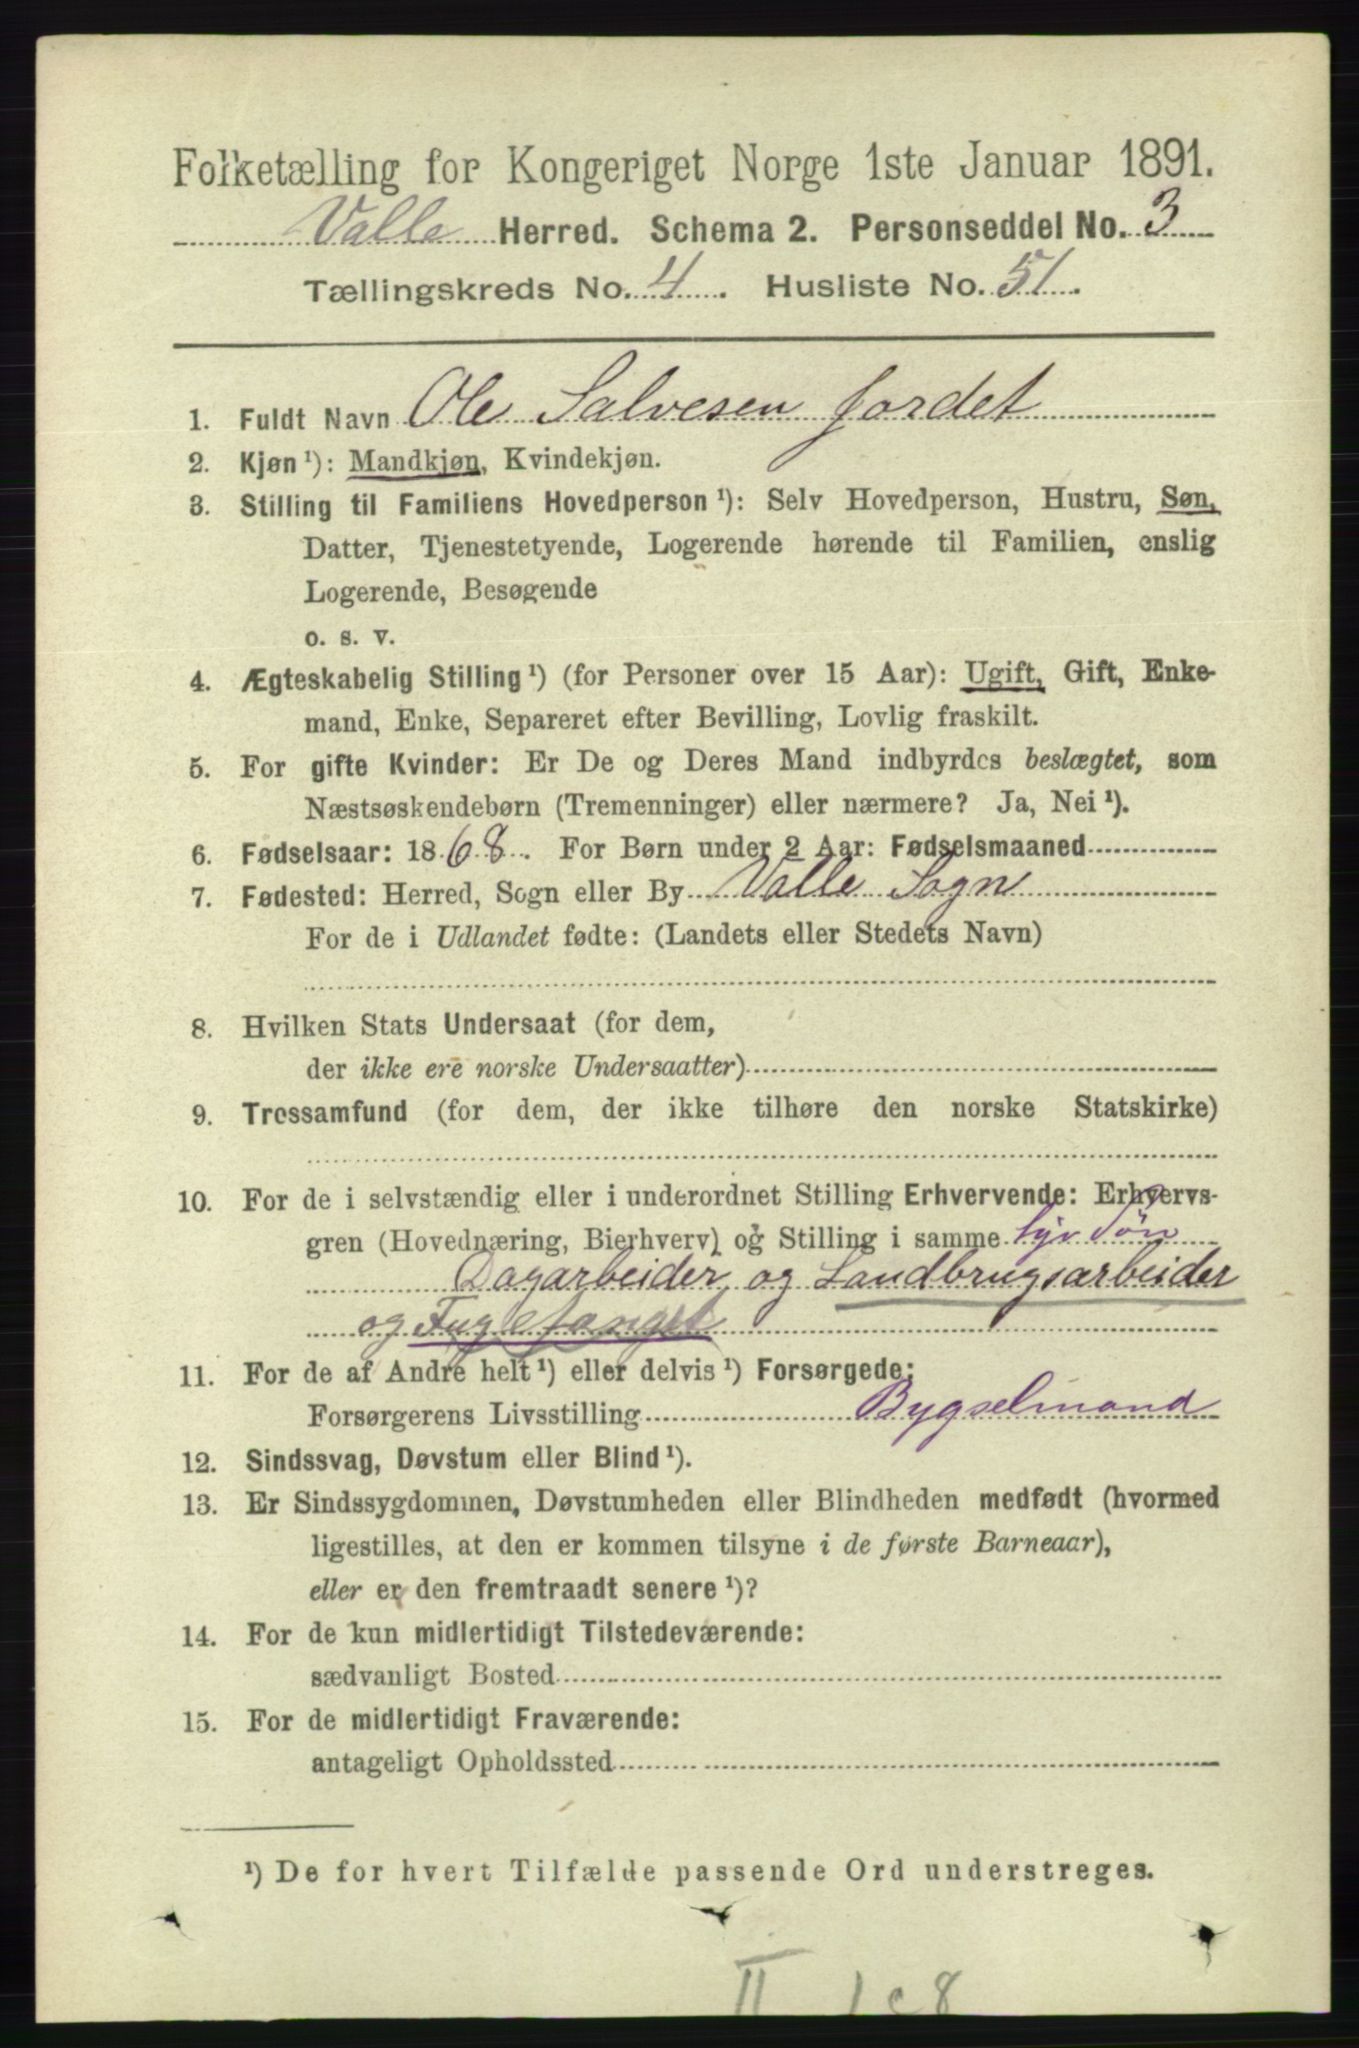 Folketælling for Kongeriget Norge 1ste Januar 1891.
Valle Herred. Schema 2. Personseddel No. 3
Tællingskreds No. 4. Husliste No. 51.
1. Fuldt Navn Ole Salvesen Jordet
2. Kjøn¹): Mandkjøn, Kvindekjøn.
3. Stilling til Familiens Hovedperson¹): Selv Hovedperson, Hustru, Søn,
Datter, Tjenestetyende, Logerende hørende til Familien, enslig
Logerende, Besøgende
o. s. v.
4. Ægteskabelig Stilling¹) (for Personer over 15 Aar): Ugift, Gift, Enke-
mand, Enke, Separeret efter Bevilling, Lovlig fraskilt.
5. For gifte Kvinder: Er De og Deres Mand indbyrdes beslægtet, som
Næstsøskendebørn (Tremenninger) eller nærmere? Ja, Nei¹).
6. Fødselsaar: 1868. For Børn under 2 Aar: Fødselsmaaned
7. Fødested: Herred, Sogn eller By Valle Sogn
For de i Udlandet fødte: (Landets eller Stedets Navn)
8. Hvilken Stats Undersaat (for dem,
der ikke ere norske Undersaatter)
9. Trossamfund (for dem, der ikke tilhøre den norske Statskirke)
10. For de i selvstændig eller i underordnet Stilling Erhvervende: Erhvervs-
gren (Hovednæring, Bierhverv) og Stilling i samme Søn
Dagarbeider og Landbrugsarbeider
og Fuglefangst
11. For de af Andre helt¹) eller delvis¹) Forsørgede:
Forsørgerens Livsstilling Bygselmand
12. Sindssvag, Døvstum eller Blind¹).
13. Er Sindssygdommen, Døvstumheden eller Blindheden medfødt (hvormed
ligestilles, at den er kommen tilsyne i de første Barneaar),
eller er den fremtraadt senere¹)?
14. For de kun midlertidigt Tilstedeværende:
sædvanligt Bosted
15. For de midlertidigt Fraværende:
antageligt Opholdssted
¹) De for hvert Tilfælde passende Ord understreges.
II 1c8